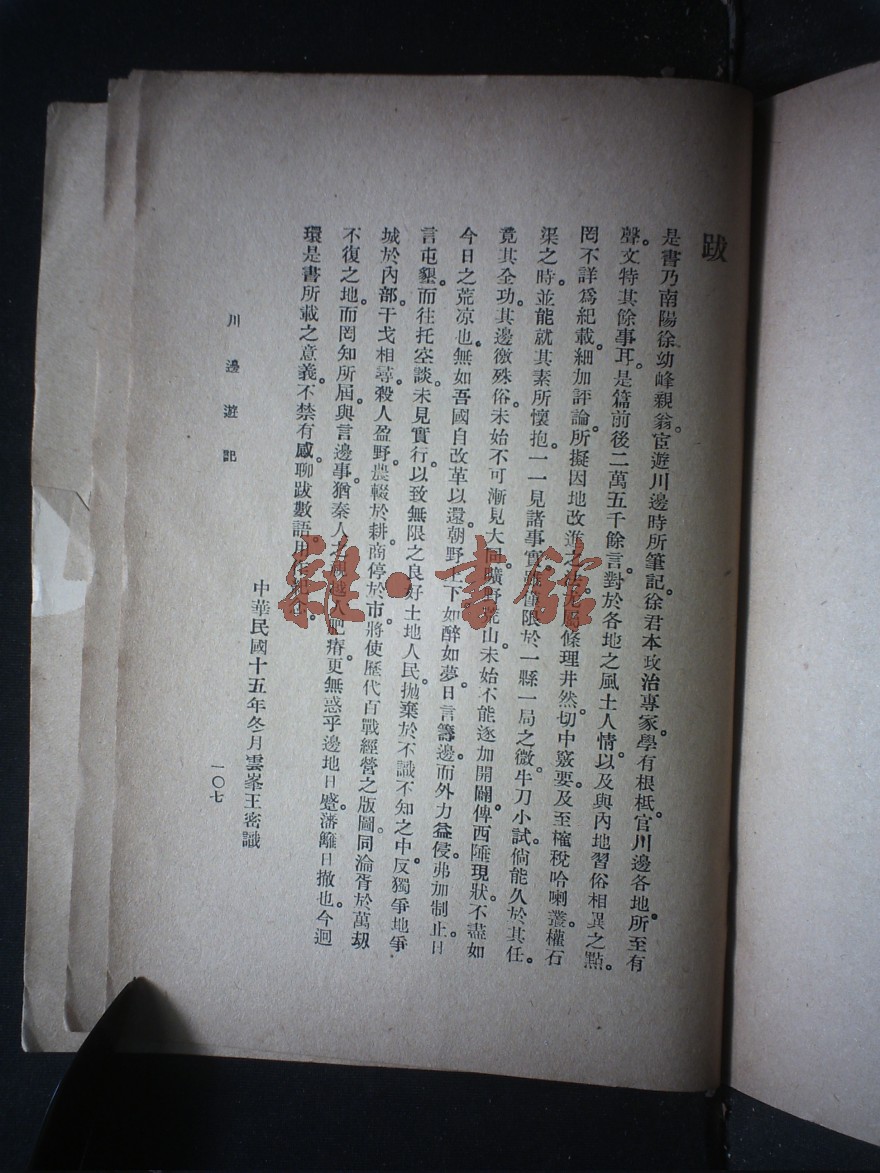 跋
是書乃南陽徐幼峰親翁宦遊川邊時所筆記。徐君本政治專家。學有根柢。官川邊各地。所至有
聲。文特其餘事耳。是篇前後二萬五千餘言。對於各地之風土人情。以及與內地習俗相異之點。
罔不詳爲紀載。細加評論。所擬因地改進之法。尤屬條理井然。切中竅要。及至榷稅哈喇。叢權石
渠之時。並能就其素所懷抱。一一見諸事實。雖僅限於一縣一局之微。牛刀小試。倘能久於其任。
竟其全功。其邊徼殊俗。未始不可漸見大同。曠野荒山。未始不能逐加開闢。俾西陲現狀。不盡如
今日之荒凉也。無如吾國自改革以還。朝野上下。如醉如夢。日言籌邊。而外力益侵。弗加制止。日
言屯墾。而往托空談。未見實行。以致無限之良好土地人民。拋棄於不識不知之中。反獨爭地爭
城於內部。干戈相尋。殺人盈野。農輟於耕。商停於市。將使歷代百戰經營之版圖。同淪胥於萬刼
不復之地。而罔知所屆。與言邊事。猶秦人之視越人肥瘠。更無惑乎邊地日蹙。藩籬日撤也。今迴
環是書所載之意義。不禁有感。聊跋數語。用
中華民國十五年冬月雲峯王密識
川邊遊記
一〇七
雜·書館